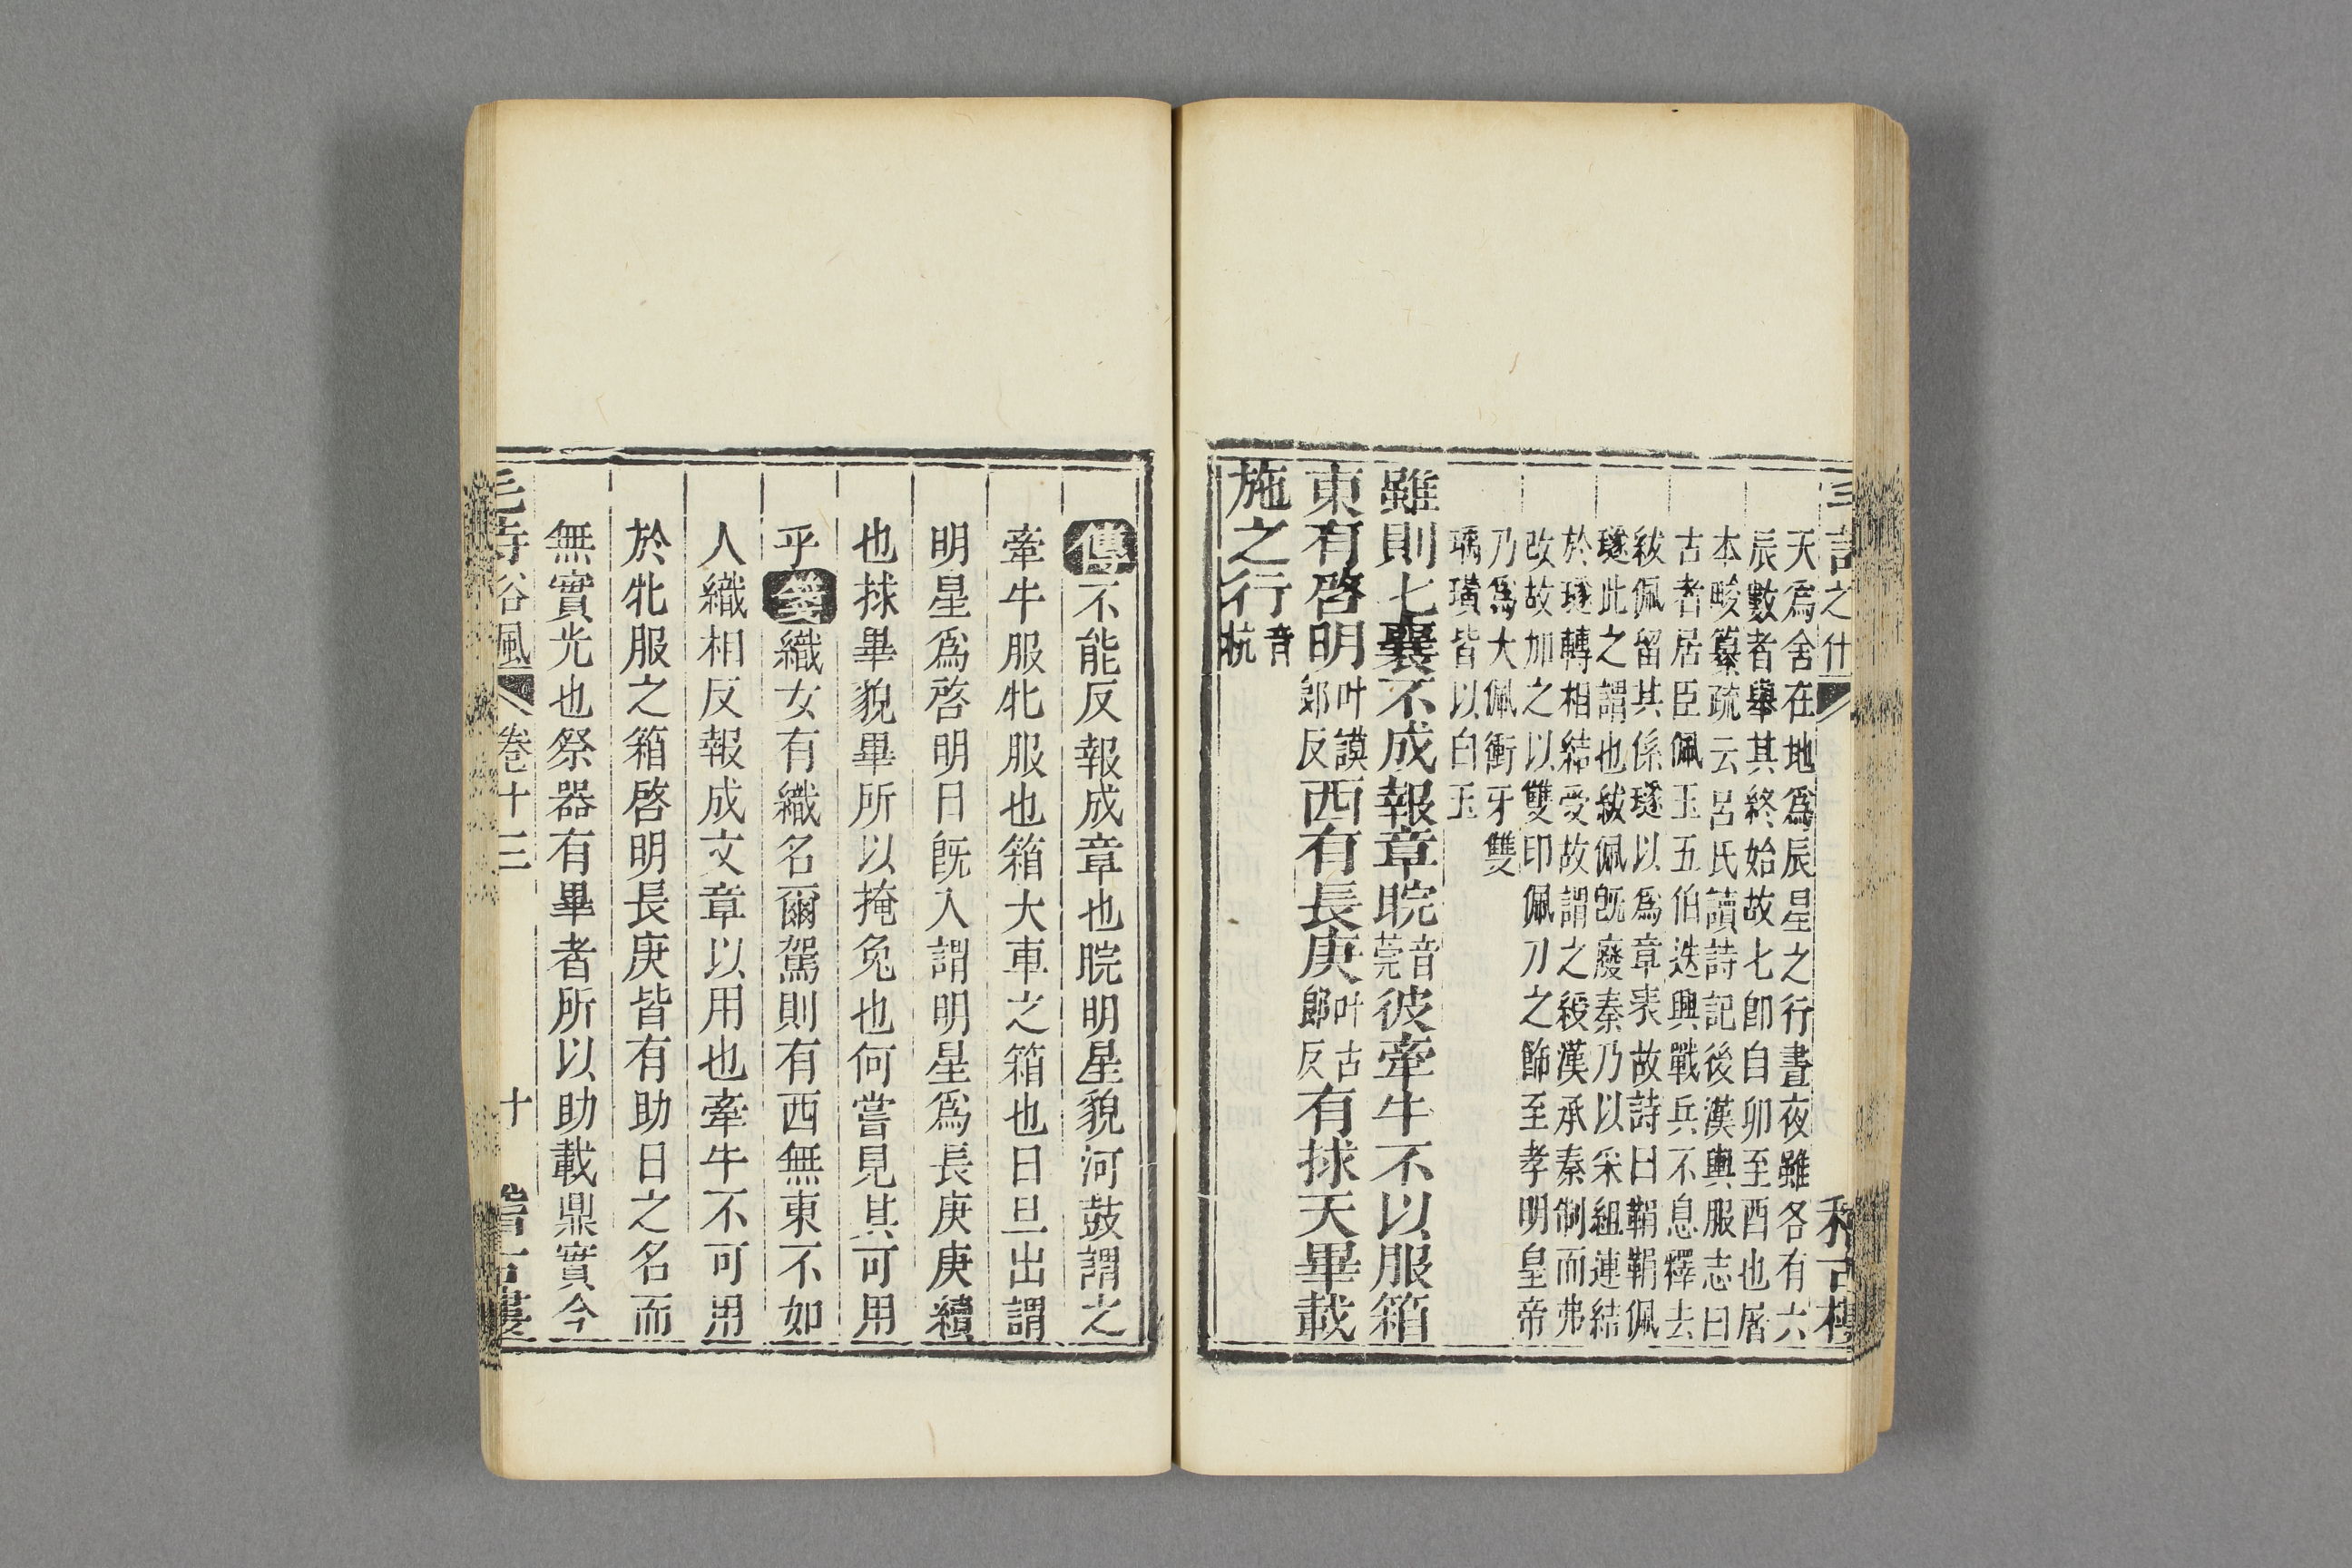 天爲舍在地爲辰星之行晝夜雖各有六
辰數者舉其終始故七卽自卯至酉也㞐
本畯纂疏云呂氏讀詩記後漢輿服志曰
古者居臣佩玉五伯迭興戰兵不息釋去
紱佩留其係璲以爲章表故詩曰鞙鞙佩
璲此之謂也紱佩旣廢秦乃以采組連結
於璲轉相結受故謂之綬漢承秦制而弗
改故加之以雙印佩刀之飾至孝明皇帝
乃爲大佩衝牙雙
瑀璜皆以白玉
雖則七襄不成報章睆音莞彼牽牛不以服箱
東有啓明叶謨郞反西有長庚叶古郞反有捄天畢載
施之行音杭
傳不能反報成章也睆明星貌河鼓謂之
牽牛服牝服也箱大車之箱也日旦出謂
明星爲啓明日旣入謂明星爲長庚庚續
也捄畢貌畢所以掩兔也何嘗見其可用
乎箋織女有織名爾駕則有西無東不如
人織相反報成文章以用也牽牛不可用
於牝服之箱啓明長庚皆有助日之名而
無實光也祭器有畢者所以助載鼎實今
毛詩谷風 卷十三 十